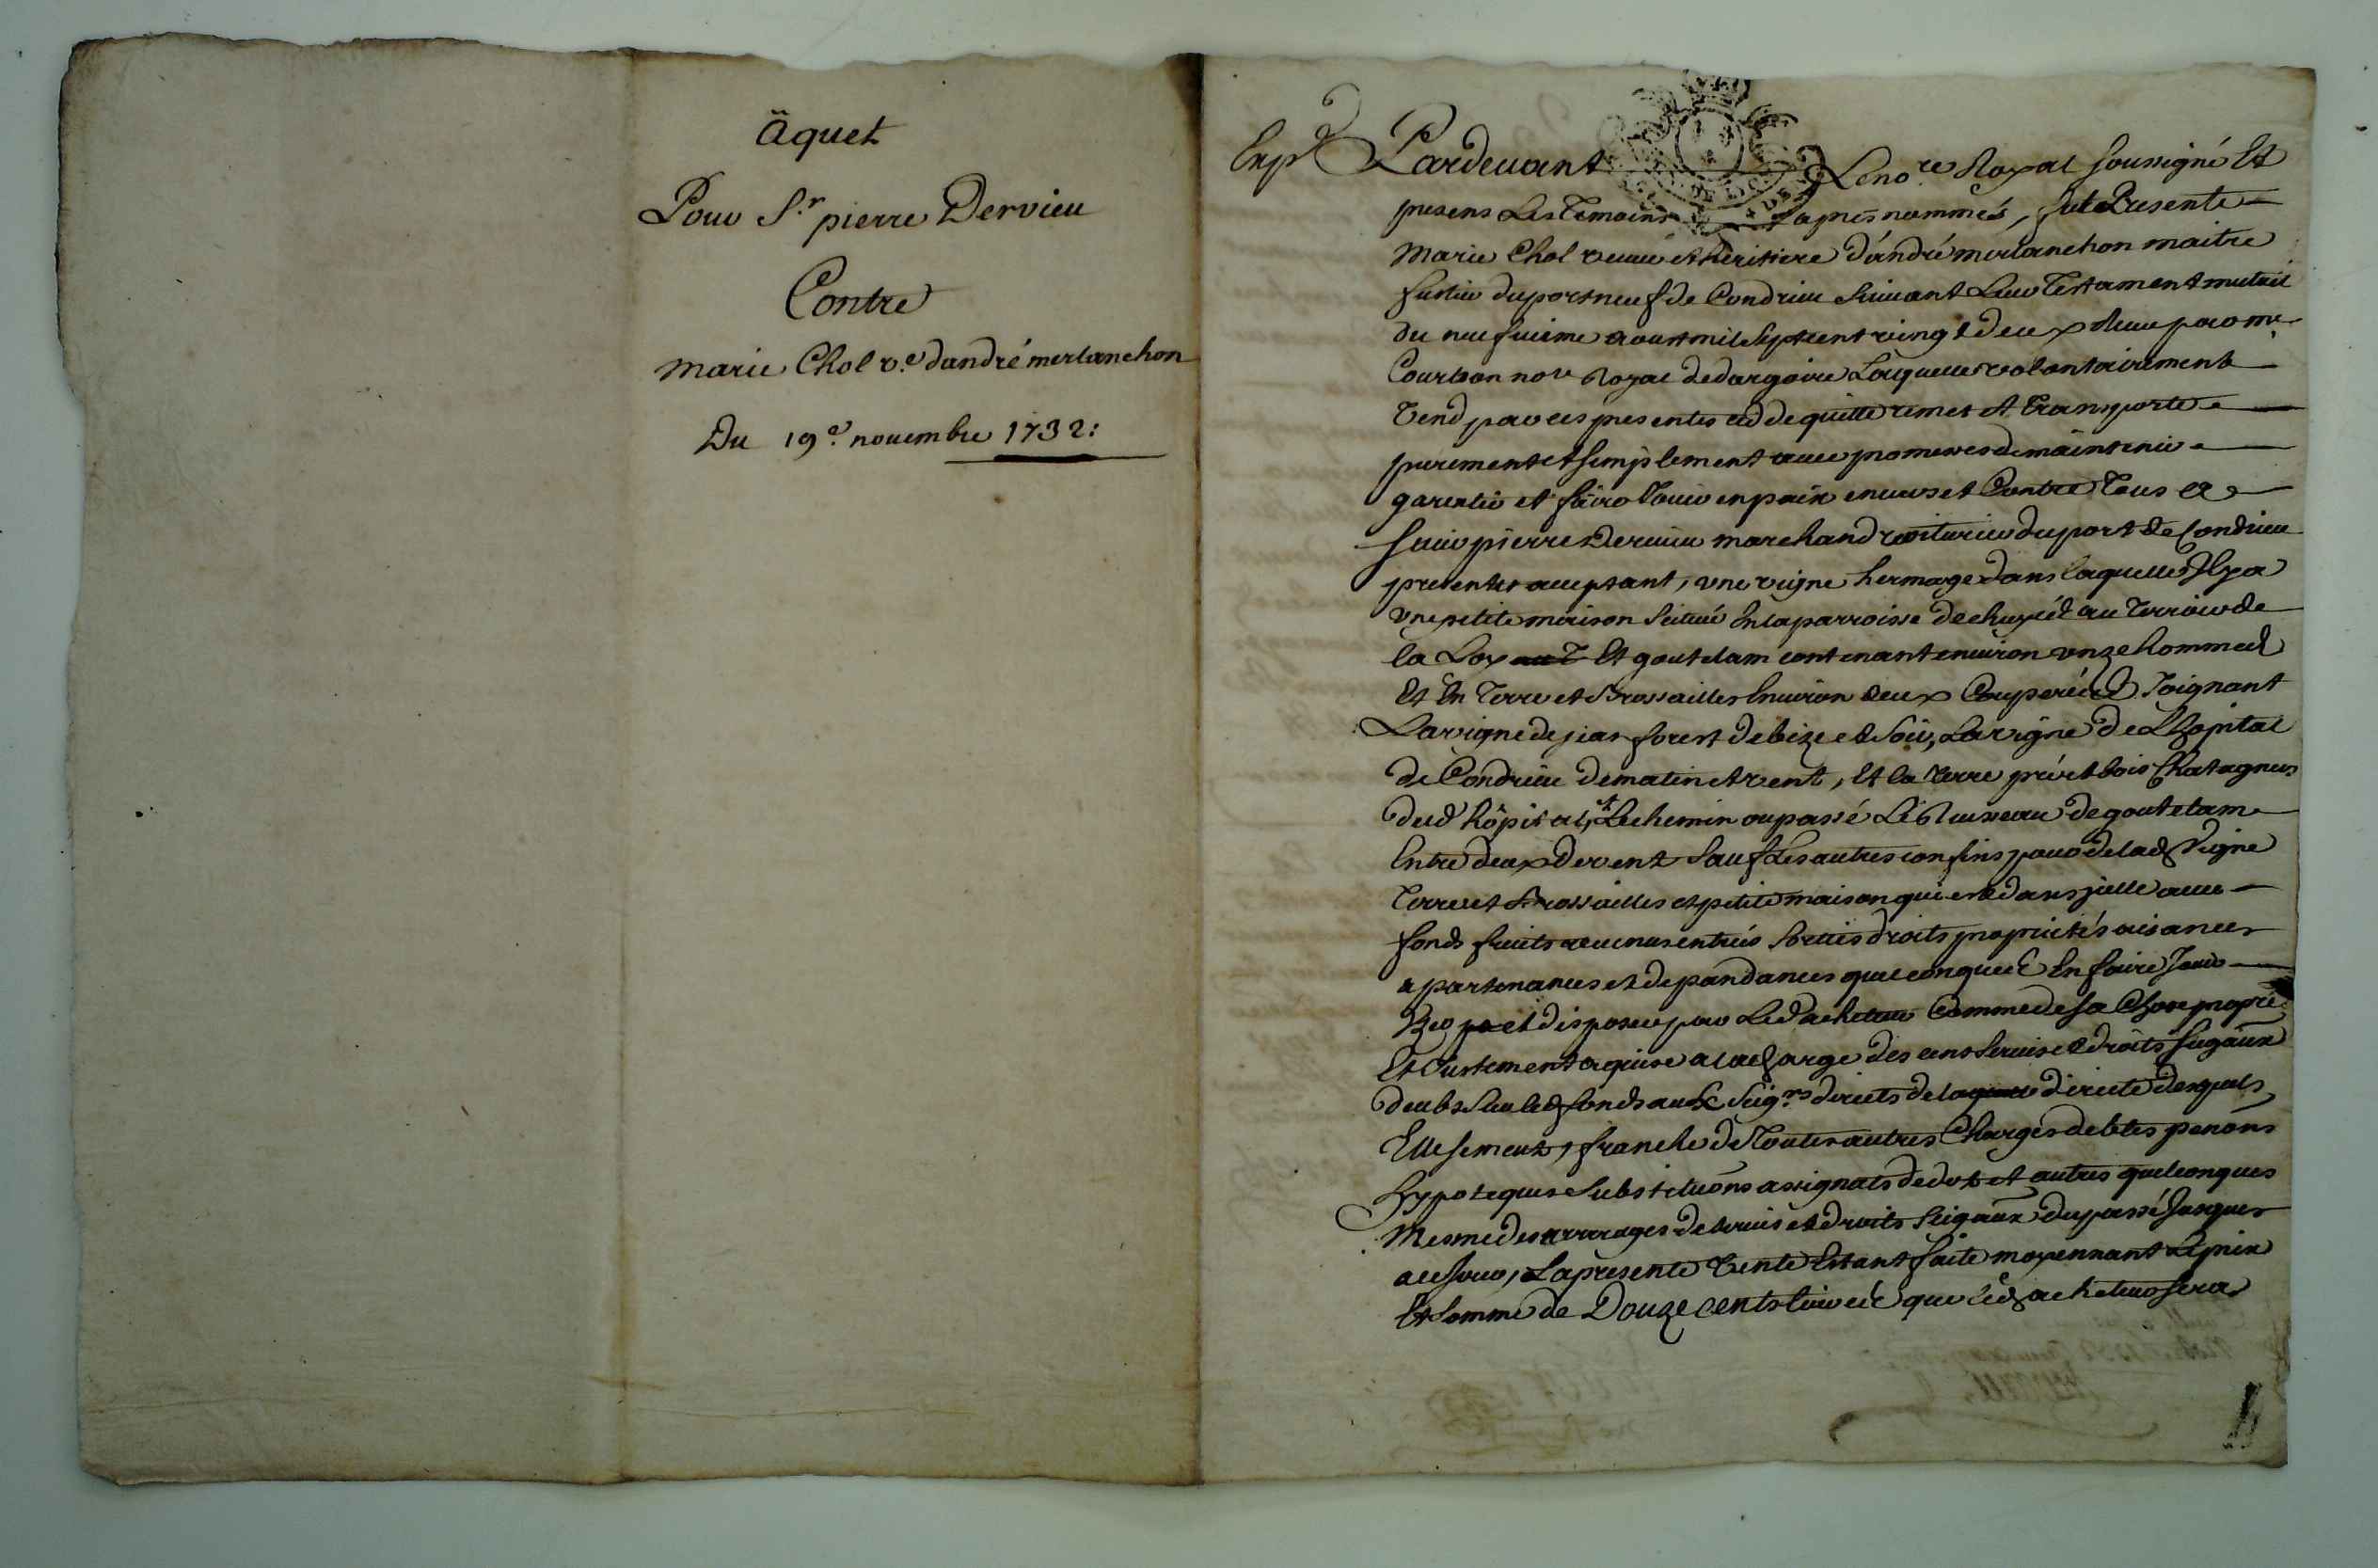 äquet
Pour S.r pierre Dervieu
Contre
marie Chol v.e dandré merlanchon
Du 19.e novembre 1732:
Exp.d
Pardevant Le no.re Royal soussigné Et
presens Les Temoins Capres nommés, fut Presente
Marie Chol veuve et heritiere d'andré merlanchon maitre
du port neuf de Condrieu suivant Leur Testament mutuel
du neufuieme aoust mil sept cent vingt deux par me
Courbon no.re Royal de dargoire Laquelle volontairement
Vend par ces presentes ced de quitte remet et transporte
purement et simplement avec promesses de maintenir
garentir et faire Jouir en paix envers et Contre Tous a
sieur pierre Dervieu marchand voiturier du port de Condrieu
present et acceptant, une vigne hermage dans laquelle Il y a
vne petite maison scituée En la parroisse de chuyés au Terroir de
la Loy Et goutelam contenant environ onze hommeés
Et En Terre et Brossailles Environ deux Couperées Joignant
La vigne de jean forest de bize et soir, La vigne de Lhopital
de Condrieu de matin et vent, Et la Terre pré et bois Chatagners
dud hôpital, et Le chemin ou passé Le Ruisseau de goutelam
Entre deux de vent sauf Les autres confins pour de lad Vigne
Terre et Brossailles et petite maison qui est dans jcelle avec
fonds fruits revenus entrées sorties droits proprietés aisances
apartenances et dependances quelconques En faire Jouir
User et disposer par Led acheteur Comme de sa Chose propre
Et Justement aquise a la charge des cens servise et droits sugaux
deubs sur led fonds aux Seig.rs directs de la directe desquels
Elle se meut, franche de Toutes autres Charges debtes penons
hypoteques substituons assignats de dot et autres quelconques
Mesme des arrerages de servis et droits seigaux du passé Jusques
a ce Jour, La presente Vente Estant faite moyennant Le prix
Et somme de Douze cents livres que led acheteur sera